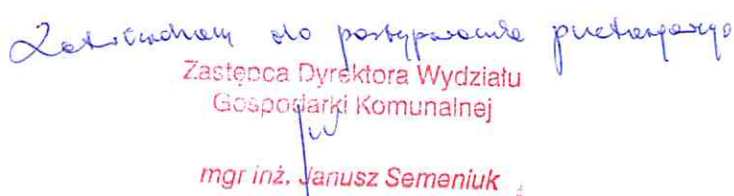 Zatwierdzam do postępowania przetargowego
Zastępca Dyrektora Wydziału
Gospodarki Komunalnej
mgr inż. Janusz Semeniuk